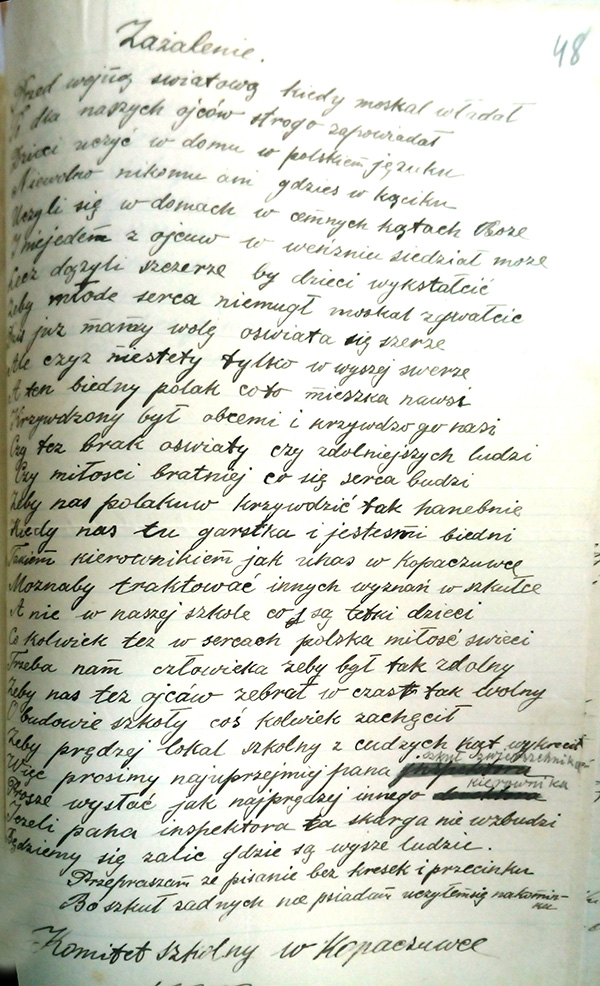 48
Zażalenie.
Przed wojną swiatową kiedy moskal władał
I dla naszych ojców strogo zapowiadał
Dzieci uczyć w domu w polskiem języku
Niewolno nikomu ani gdzies w kąciku
Uczyli się w domach w cemnych kątach Boże
I niejedem z ojcuw w weńzniu siedział może
Lecz dązyli szczerze by dzieci wykstałcić
Zeby młode serca niemugł moskal zgwałcic
Dziś juz mamy wolę oswiata się szerze
Ale czyz niestety tylko w wyszej swerze
A ten biedny polak co to mieszka nawsi
Krzywdzony był obcemi i krzywdzo go nasi
Czy tez brak oswiaty czy zdolniejszych ludzi
Czy miłosci bratniej co się serca budzi
Zeby nas polakuw krzywdzić tak hanebnie
Kiedy nas tu garstka i jestesmi biedni
Takiem kierownikiem jak ukas w Kopaczuwce
Moznaby traktować innych wyznań w szkułce
A nie w naszej szkole co są dzieci
Co kolwiek tez w sercach polzka miłosć swieci
Trzeba nam człowieka zeby był tak zdolny
Zeby nas tez ojcaw zebrał w czas tak wolny
O budowie szkoły coś kolwiek zachęcił
Zeby prędzej lokal szkolny z cudzych kąt wykręcił
Więc prosimy najuprzejmiej pana szkuł zwierzchnika
Prosze wysłać jak najprędzej innego kierownika
Jezeli pana inzpektora ta skarga nie wzbudzi
Będziemy się zalic gdzie są wysze ludzie.
Przepraszam ze pisanie bez kresek i przecinku
Bo szkuł zadnych nie psiadam uczyłemsię nakominku
Komitet szkolny w Kopaczuwce